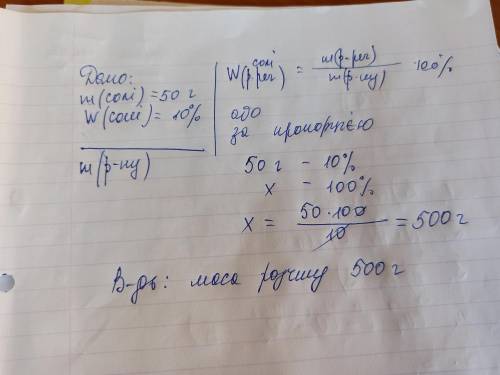 Дано:
m(солі) = 50 г
W(солі) = 10%
m(р-ну)
W(р.реч) солі = m(р-реч) / m(р-ну) · 100%
або
за пропорцією
50 г – 10%
х – 100%
х = 50·100 / 10 = 500 г
В-дь: маса розчину 500 г